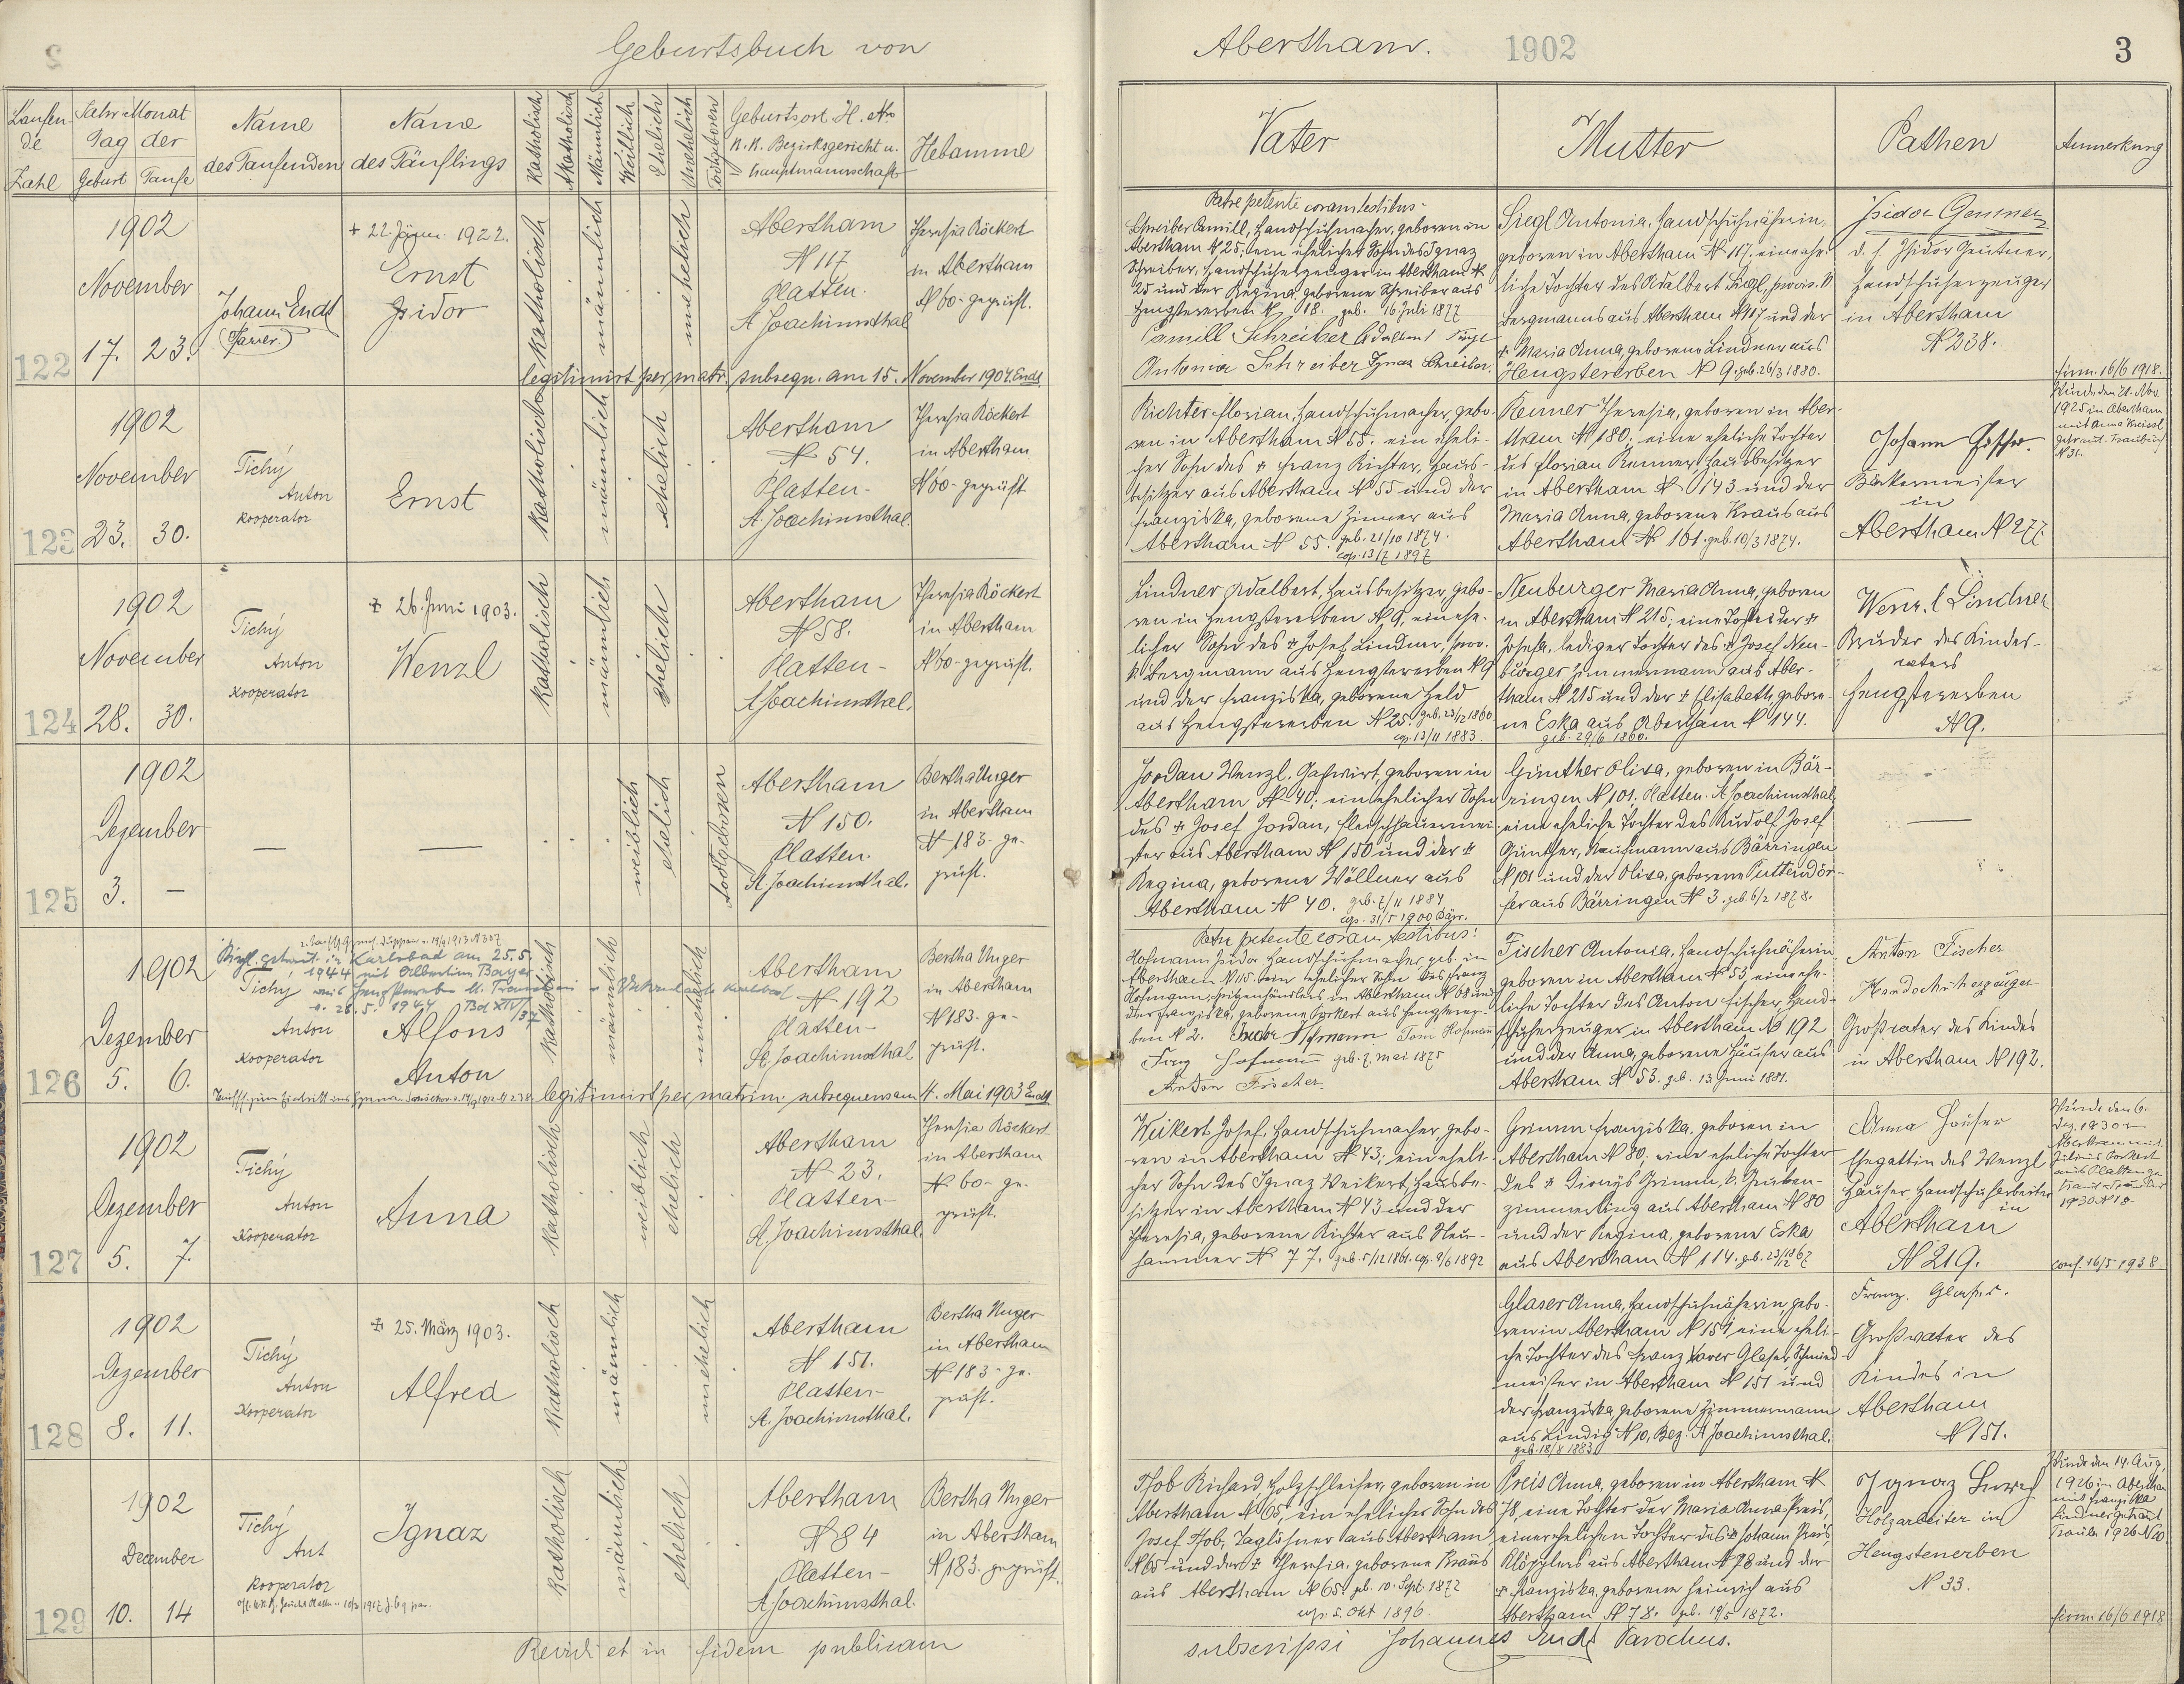 Geburtsbuch von
Abertham. 1902 3
Laufen-
de
Zahl
Jahr Monat
Tag der
Geburt Taufe
Name
des Taufenden
Name
des Täuflings
Katholisch
Akatholisch
Männlich
Weiblich
Ehelich
Unehelich
Todtgeboren
Geburtsort H. Nro
K. K. Bezirksgericht u.
Hauptmannschaft
Hebamme
Vater
Mutter
Pathen
Anmerkung
122
1902
November
17. 23.
Johann Endt
(Pfarrer.)
+ 22 Jänner 1922.
Ernst
Isidor
Katholisch
männlich
unehelich
Abertham
N 117
Platten.
St Joachimsthal
Theresia Röckert
in Abertham
N 60 - geprüft.
legitimirt per matr. subsequ. am 15. November 1907. Endt
Patre petente coram testibus -
Schreiber Camill, Handschuhmacher, geboren in
Abertham N 25; ein ehelicher Sohn des Ignaz
Schreiber, Handschuherzeuger in Abertham N
25 und der Regina, geborene Schreiber aus
Hengstererben N 18. geb. 16 Juli 1877
Camill Schreiber Adalbert Siegl
Antonia Schreiber Ignaz Schreiber.
Siegl Antonia, Handschuhnäherin,
geboren in Abertham N 117; eine ehe-
liche Tochter des Adalbert Siegl, provis. k
Bergmanns aus Abertham N 117 und der
+ Maria Anna, geborene Lindner aus
Hengstererben N 9. geb. 26/3 1880.
Isidor Gentner
d. h. Isidor Gentner,
Handschuherzeuger
in Abertham
N 238.
firm. 16/6 1918.
123
1902
November
23. 30.
Tichý
Anton
Kooperator
Ernst
Katholisch
männlich
ehelich
Abertham
N 54.
Platten-
St. Joachimsthal.
Theresia Röckert
in Abertham
N 60 - geprüft
Richter Florian, Handschuhmacher, gebo-
ren in Abertham N 55. ein eheli-
cher Sohn des + Franz Richter, Haus-
besitzer aus Abertham N 55 und der
Franziska, geborene Zinner aus
Abertham N 55. geb. 21/10 1874.
cop. 13/7 1897
Renner Theresia, geboren in Aber-
tham N 180; eine eheliche Tochter
des Florian Renner, Hausbesitzer
in Abertham N 143 und der
Maria Anna, geborene Kraus aus
Abertham N 161. geb. 10/3 1874.
Johann
Bäckermeister
in
Abertham N 277
Wurde den 21. Nov.
1925 in Abertham
mit Anna Kreissl
getraut. Traubuch
N 31.
124
1902
November
28. 30.
Tichý
Anton
Kooperator
+ 26. Juni 1903.
Wenzl
Katholisch
männlich
ehelich
Abertham
N 58.
Platten-
St Joachimsthal.
Theresia Röckert
in Abertham
N 60 - geprüft.
Lindner Adalbert, Hausbesitzer, gebo-
ren in Hengstererben N 9, ein ehe-
licher Sohn des + Josef Lindner, prov.
k. Bergmann aus Hengstererben N 9
und der Franziska, geborene Held
aus Hengstererben N 25. geb. 23/12 1860
cop. 13/11 1883
Neuburger Maria Anna, geboren
in Abertham N 215; eine Tochter der +
Josefa, lediger Tochter des + Josef Neu-
burger Zimmermann aus Aber-
tham N 215 und der + Elisabeth, gebore-
ne Eska aus Abertham N 144.
geb. 29/6 1860.
Wenzl Lindner
Bruder des Kindes-
vaters
Hengstererben
N 9.
125
1902
Dezember
3. —
— —
weiblich
ehelich
todtgeboren
Abertham
N 150.
Platten.
St Joachimsthal.
Bertha Unger
in Abertham
N 183. ge-
prüft.
Jordan Wenzl, Gastwirt, geboren in
Abertham N 40; ein ehelicher Sohn
des + Josef Jordan, Fleischhauermei-
ster aus Abertham N 150 und der +
Regina, geborene Wöllner aus
Abertham N 40.
cop. 31/5 1900 Bärr.
Günther Oliva, geboren in Bär-
ringen N 101. Platten. St Joachimsthal
eine eheliche Tochter des Rudolf Josef
Günther, Kaufmann aus Bärringen
N 101 und der Oliva, geborene Puttendör-
fer aus Bärringen N 3. geb. 6/2 1878.
—
126
1902
Dezember
5. 6.
getraut in Karlsbad am 25.5.
1944 mit Albertine Bayer
Tichý
Anton
Kooperator
Alfons
Anton
Katholisch
männlich
unehelich
Abertham
N 192
Platten-
St. Joachimsthal
Bertha Unger
in Abertham
N 183. ge-
prüft.
legitimirt per matrim. subsequens am 4. Mai 1903 Endt
Patre petente coram testibus:
Hofmann Isidor Handschuhmacher geb. in
Abertham N 115. ein ehelicher Sohn des Franz
Hofmann, Spitzenhändlers in Abertham N 68 und
der Franziska, geborene Porkert aus Hengsterer-
ben N 2. Isidor Hofmann Toni Hofmann
Franz Hofmann geb. 7. Mai 1875
Anton Fischer.
Fischer Antonia, Handschuhnäherin
geboren in Abertham N 53, eine ehe-
liche Tochter des Anton Fischer, Hand-
schuherzeuger in Abertham N 192
und der Anna, geborene Häuser aus
Abertham N 53. geb. 13 Juni 1881.
Anton Fischer
Handschuherzeuger
Großvater des Kindes
in Abertham N 192.
127
1902
Dezember
5. 7.
Tichý
Anton
Kooperator
Anna
Katholisch
weiblich
ehelich
Abertham
N 23.
Platten-
St. Joachimsthal.
Theresia Röckert
in Abertham
N 60 - ge-
prüft.
Weikert Josef, Handschuhmacher, gebo-
ren in Abertham N 43; ein eheli-
cher Sohn des Ignaz Weikert, Hausbe-
sitzer in Abertham N 43 und der
Theresia, geborene Richter aus Neu-
hammer N 77. geb. 5/12 1861. cop. 9/6 1892
Grimm Franziska, geboren in
Abertham N 80; eine eheliche Tochter
des + Dionÿs Grimm, k. Gruben-
zimmerling aus Abertham N 80
und der Regina, geborene Eska
aus Abertham N 114. geb. 23/12 1867
Anna Häuser
Ehegattin des Wenzl
Häuser Handschuharbeiter
in
Abertham
N 219.
Wurde den 6.
Dez. 1930 in
Abertham mit
Julius Porkert
aus Platten ge-
traut
1930 N 18
conf. 16/5 1938.
128
1902
Dezember
8. 11.
Tichý
Anton
Kooperator
+ 25. März 1903.
Alfred
Katholisch
männlich
unehelich
Abertham
N 151.
Platten-
St. Joachimsthal.
Bertha Unger
in Abertham
N 183 - ge-
prüft.
Glaser Anna, Handschuhnäherin, gebo-
ren in Abertham N 151 eine eheli-
che Tochter des Franz Xaver Glaser, Schmied-
meister in Abertham N 151 und
der Franziska, geborene Zimmermann
aus Lindig N 10, Bez. St Joachimsthal.
geb. 18/8 1883
Franz Glaser.
Großvater des
Kindes in
Abertham
N 151.
129
1902
December
10. 14
Tichý
Ant
Kooperator
Ignaz
Katholisch
männlich
ehelich
Abertham
N 84
Platten-
St. Joachimsthal.
Bertha Unger
in Abertham
N 183. geprüft.
Hob Richard, Holzschleifer, geboren in
Abertham N 65, ein ehelicher Sohn des
Josef Hob, Taglöhner aus Abertham
N 65 und der + Theresia, geborene Kraus
aus Abertham N 65. geb. 10. Sept. 1872
cop. 5. Okt 1896.
Preis Anna, geboren in Abertham N
78, eine Tochter der Maria Anna Preis,
einer ehelichen Tochter des + Johann Preis,
Klöpplers aus Abertham N 78 und der
+ Franziska, geborene Heinrich aus
Abertham N 78. geb. 19/5 1872.
Ignaz
Holzarbeiter in
Hengstererben
N 33.
Wurde den 14. Aug.
1926 in Abertham
mit Franziska
Lindner getraut
Traub. 1926 N 20
firm. 16/6 1918
Revidi et in fidem publicam
subscripsi Johannes Endt Parochus.